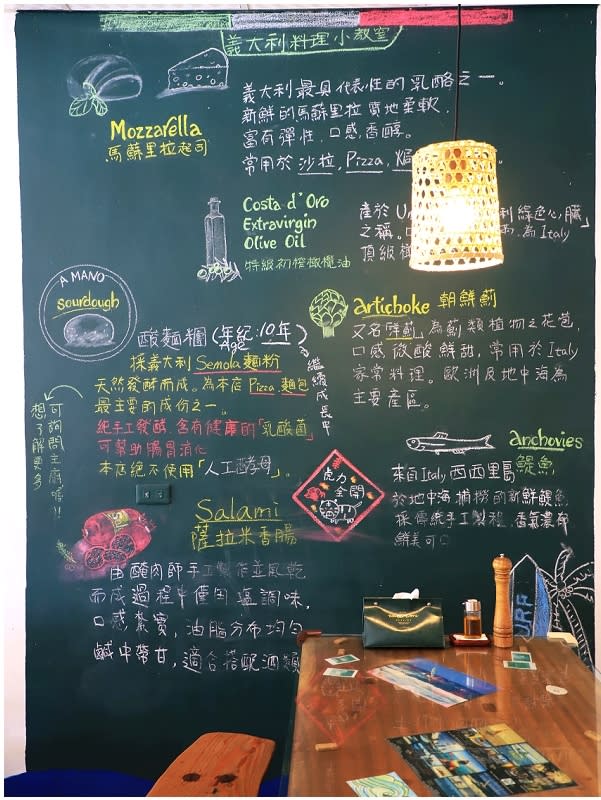 義大利料理小教室
Mozzarella
馬蘇里拉起司
義大利最具代表性的乳酪之一。
新鮮的馬蘇里拉質地柔軟，
富有彈性，口感香醇。
常用於沙拉,Pizza,焗
Costa d'Oro
Extravirgin
Olive Oil
特級初榨橄欖油
產於U 利綠色心臟」
之稱。 為Italy
頂級橄
A MANO
sourdough
酸麵糰 (年紀:10年)
Age
採義大利Semola麵粉
天然發酵而成。為本店Pizza.麵包
最主要的成份之一。
純手工發酵,含有健康的「乳酸菌」
可幫助腸胃消化
本店絕不使用「人工酵母」。
繼續成長中
可詢問主廚喔!!
想了解更多
artichoke 朝鮮薊
又名球薊,為薊類植物之花苞,
口感微酸鮮甜,常用於Italy
家常料理。歐洲及地中海為
主要產區。
anchovies
鯷魚
來自Italy西西里島
於地中海捕撈的新鮮鯷魚
採傳統手工製程,香氣濃郁
鮮美可口
虎力
全開
Salami
薩拉米香腸
由醃肉師手工製作並風乾
而成過程中僅用鹽調味,
口感紮實,油脂分布均勻
鹹中帶甘,適合搭配酒類
URF